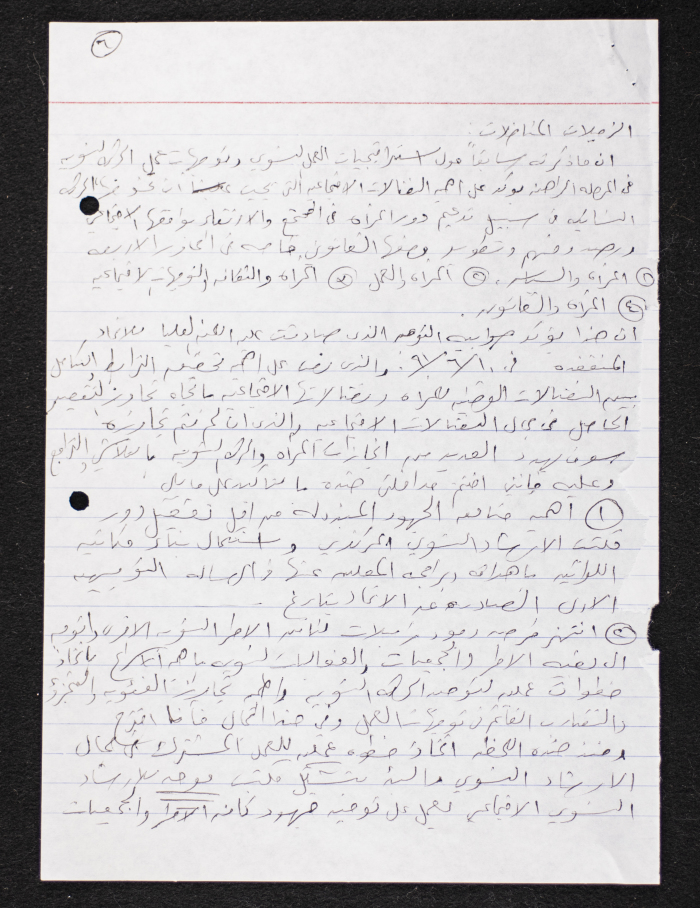 ٦
الزميلات المناضلات:
ان ما ذكرته سابقاً حول استراتيجيات العمل النسوي وتوجهات عمل الحركة النسوية
في المرحلة الراهنة يؤكد على اهمية النضالات الاجتماعية التي يجب علينا ان
النسائية في سبيل تدعيم دور المرأة في المجتمع والارتقاء بواقعها الاجتماعي
وتطوير وضعها القانوني خاصة في المحاور الاربعة
① المرأة والسياسة. ② المرأة والعمل ③ المرأة والثقافة والتوجهات الاجتماعية
④ المرأة والقانون.
ان هذا يؤكد صوابية التوجه الذي صادقت عليه الهيئة العليا للاتحاد
المنعقدة في ١٠/٦/٩١ والذي نص على اهمية تحقيق الترابط الكامل
بين النضالات الوطنية للمرأة ونضالاتها الاجتماعية باتجاه تجاوز التقصير
الحاصل في مجال النضالات الاجتماعية والذي ان لم نتم تجاوزه
سوف يهدد العديد من انجازات المرأة والحركة النسوية بالتلاشي والتراجع
وعليه فانني اختتم مداخلتي هذه بالتأكيد على ما يلي
① أهمية متابعة الجهود المبذولة من اجل تفعيل دور
مكتب الارشاد النسوي المركزي واستكمال بناء مكاتبه
اللوائية باهدافه وبرامجه المعلنة عنها في الرسالة التوجيهية
الاولى الصادرة عن الاتحاد بتاريخ
② انتهز فرصة وجود زميلات لنا من الاطر النسوية الاخرى وادعوهم
الى بقية الاطر والجمعيات والفعاليات النسوية باتخاذ
خطوات عملية لتوحيد الحركة النسوية واهمية تجاوز الفئوية والتجزؤ
والتضارب القائم في توجهات العمل وفي هذا المجال فانما اقترح
ومنذ هذه اللحظة اتخاذ خطوة عملية للعمل المشترك في مجال
الارشاد النسوي والبدء بتشكيل مكتب موحد للارشاد
النسوي الاجتماعي يعمل على توحيد جهود كافة الاطر والجمعيات